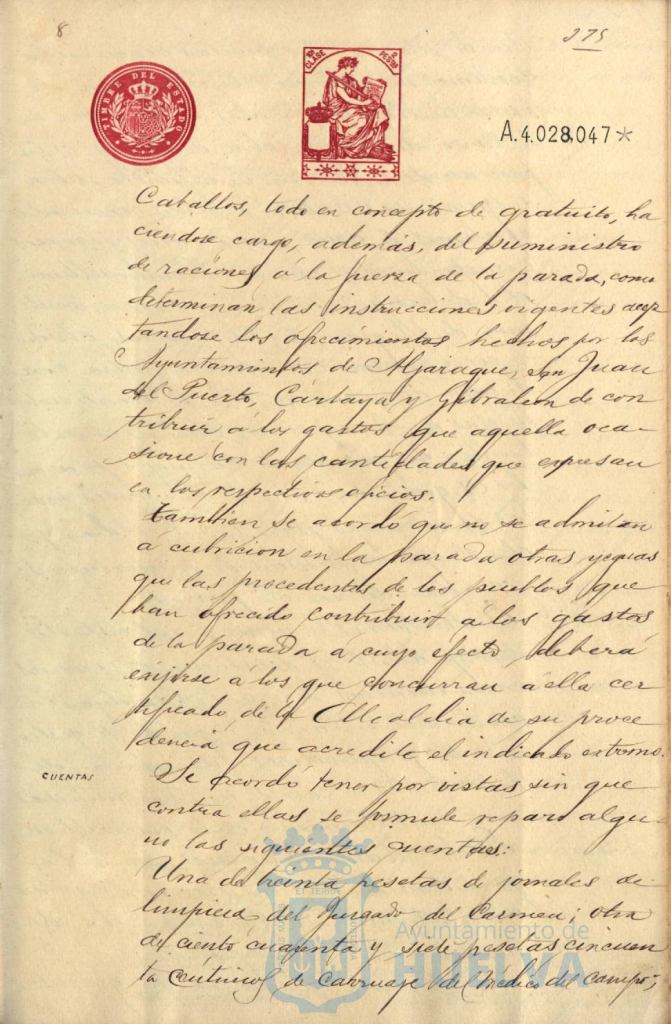 8
275
TIMBRE DEL ESTADO
10ª CLASE 2 PESTAS
A.4.028,047*
Caballos, todo en concepto de gratuito, ha
ciendose cargo, además, del suministro
de raciones á la fuerza de la parada, como
determinan las instrucciones vigentes acep
tandose los ofrecimientos hechos por los
Ayuntamientos de Aljaraque, San Juan
del Puerto, Cartaya y Gibraleon de con
tribuir á los gastos que aquella oca-
sione con las cantidades que expresan
en los respectivos oficios.
Tambien se acordó que no se admitan
á cubricion en la parada otras yeguas
que las procedentes de los pueblos que
han ofrecido contribuir á los gastos
de la parada á cuyo efecto deberá
exijirse á los que concurran á ella cer
tificado de la Alcaldia de su proce
dencia que acredite el indicado extremo.
CUENTAS
Se acordó tener por vistas sin que
contra ellas se formule reparo algu-
no las siguientes cuentas:
Una de treinta pesetas de jornales de
limpieza del Juzgado del Carmen; otra
de ciento cuarenta y siete pesetas cincuen
ta céntimos de carruaje del Médico del campo;
Ayuntamiento de
HUELVA